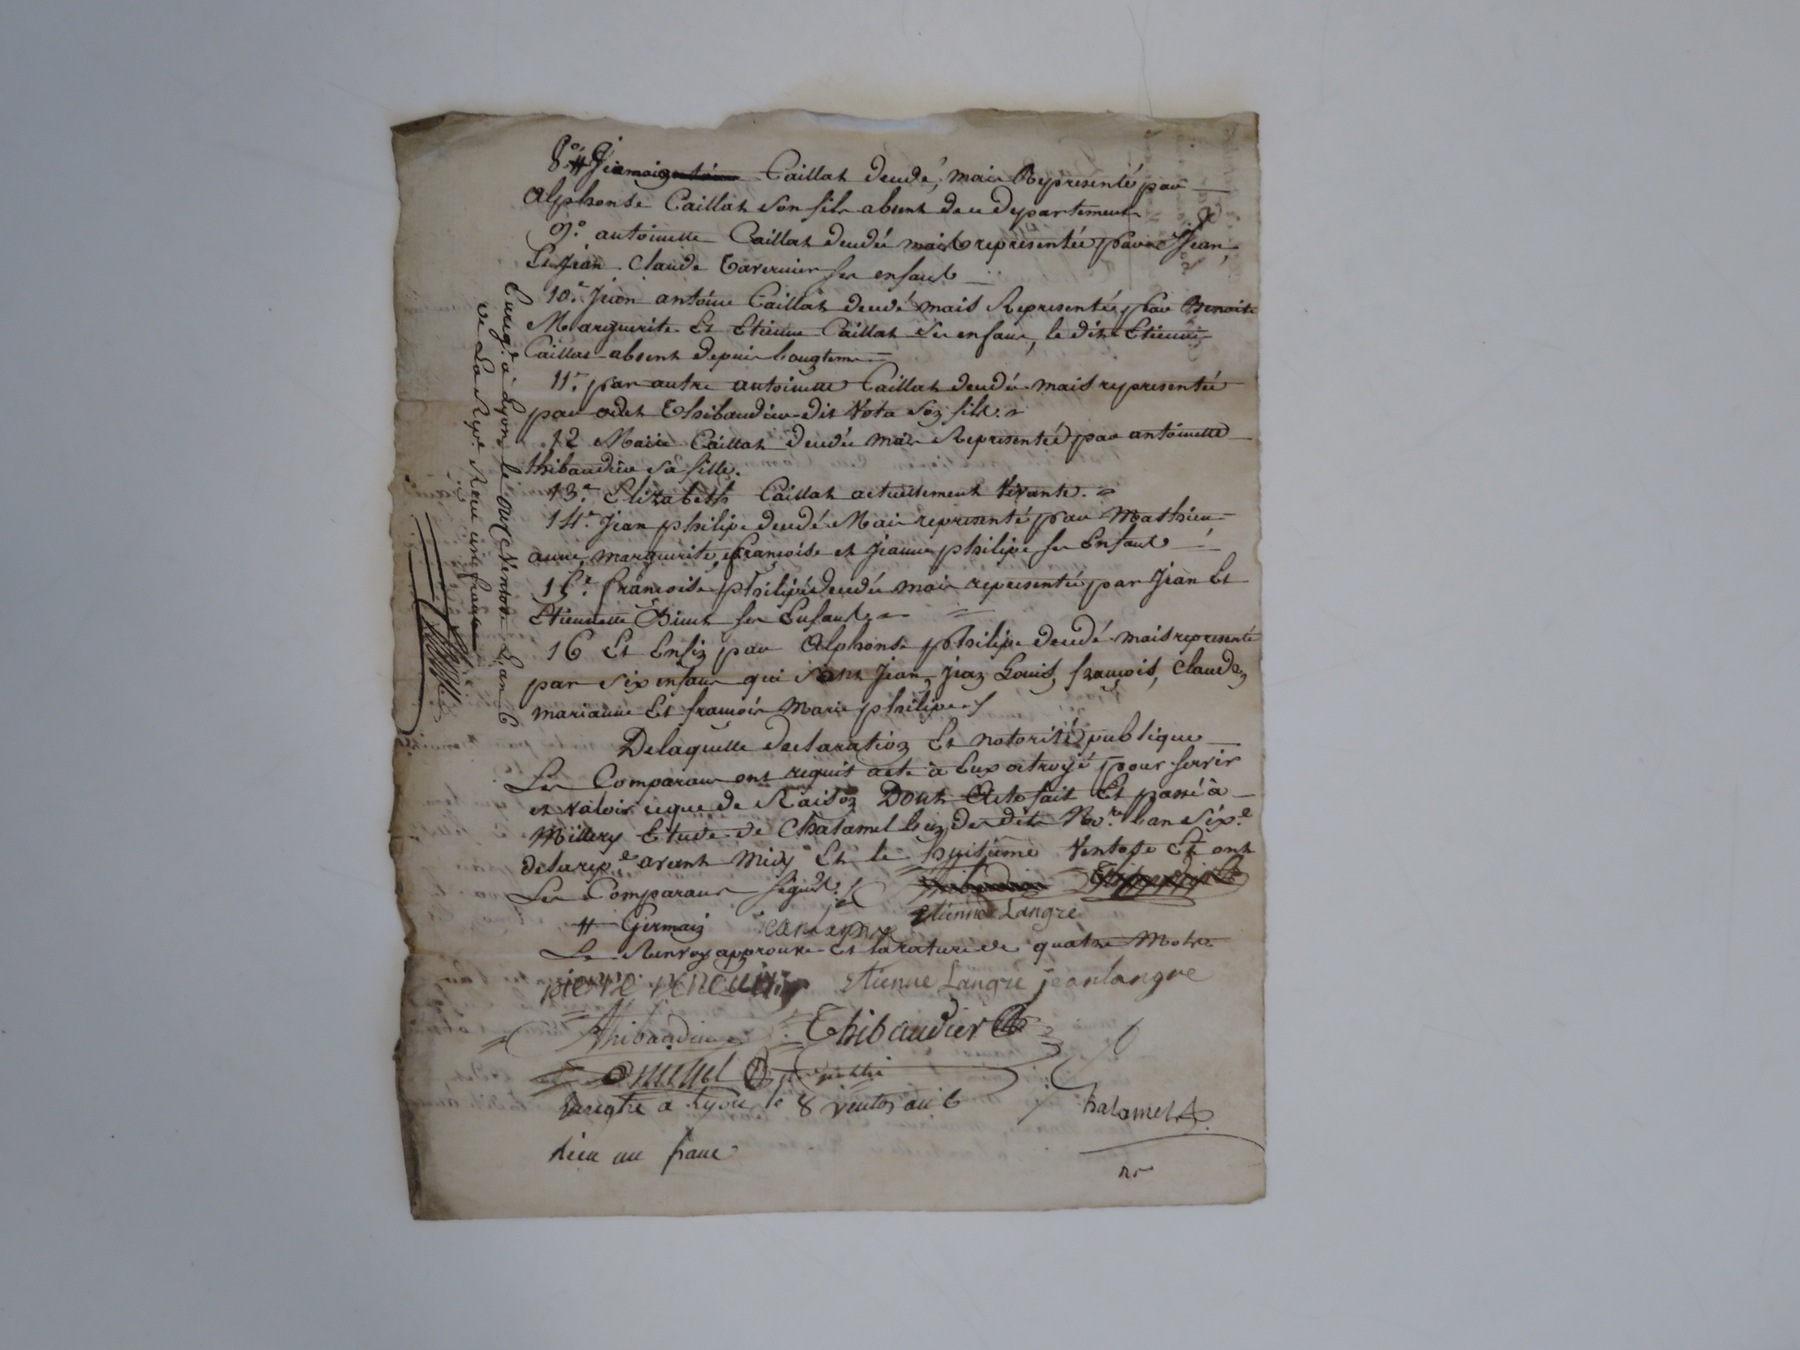 8.° # Germain Caillat décédé, mais Representé par
Alphonse Caillat son fils absent de ce departement
9.° antoinette Caillat decedée mais representée par Jean,
Et Jean Claude Tavernier ses enfants
10.° Jean antoine Caillat decedé mais Representé par Benoite
Marguerite Et Etienne Caillat ses enfans, le dit Etienne
Caillat absent depuis longtems
11.° par autre antoinette Caillat decedée mais representée
par odet Thibaudier dit Nota son fils.
12 Marie Caillat decedée mais Representée par antoinette
thibaudier sa fille.
13.e Elizabeth Caillat actuellement vivante.
14.e Jean philipe decedé Mais representé par Mathieu
anne, marguerite, françoise et Jeanne philipe ses Enfants
15.e françoise philipe decedée mais representée par Jean Et
Etiennette ses Enfants
16 Et Enfin par Alphonse philipe decedé mais representé
par six enfans qui sont Jean, Jean Louis, françois, Claude,
marianne Et françois Marie philipe
Delaquelle declaration Et notorieté publique
Les Comparans ont requit acte à Eux octroyé pour servir
et valoir ceque de Raison Dont Acte fait Et passé à
Millery Etude de Chalamel L'un des dits No.res L'an Six.e
delarep.e avant Midy Et le huitieme Ventose Et ont
Les Comparans signé
Etienne Langre
# Germain
Le Renvoy approuvé Et la rature de quatre Mots
pierre Etienne Langre jean langre
Thibaudier Thibaudier
Enregtré a Lyon le 8 ventos an 6 Chalamel
Recu un franc
Enreg.é à Lyon le Ventose L'an 6
de La Rep.e Recu un franc